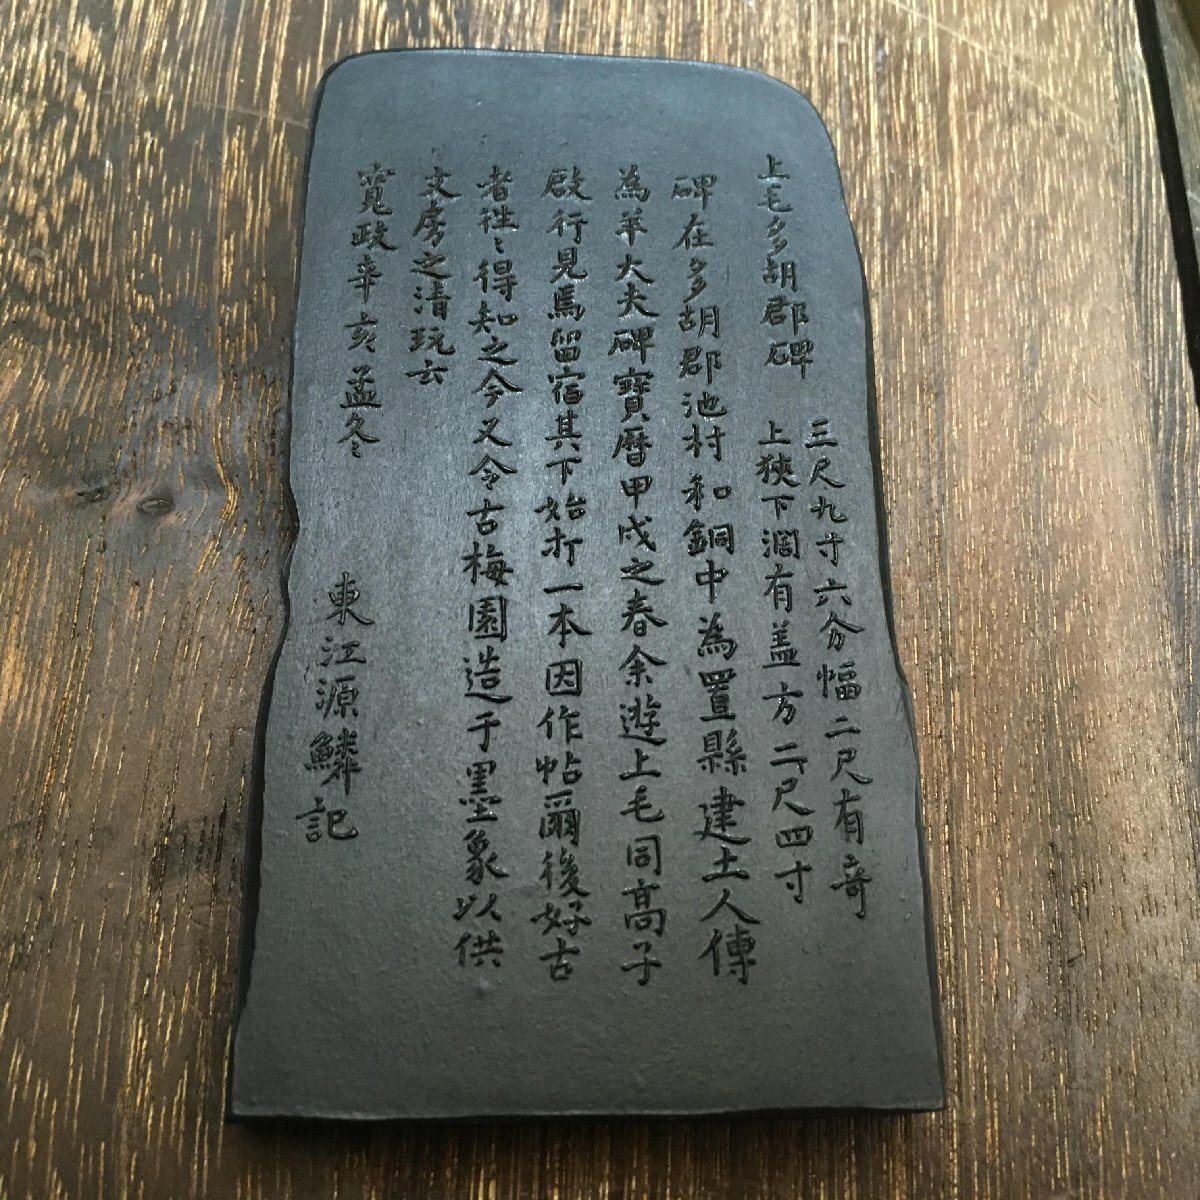 上毛多胡郡碑
三尺九寸六分幅二尺有奇
上狹下濶有盖方二尺四寸
碑在多胡郡池村和銅中為置縣建土人傳
為羊大夫碑寶曆甲戌之春余遊上毛同高子
啟行見焉留宿其下始打一本因作帖爾後好古
者徃〻得知之今又令古梅園造于墨象以供
文房之清玩云
寬政辛亥孟冬
東江源鱗記